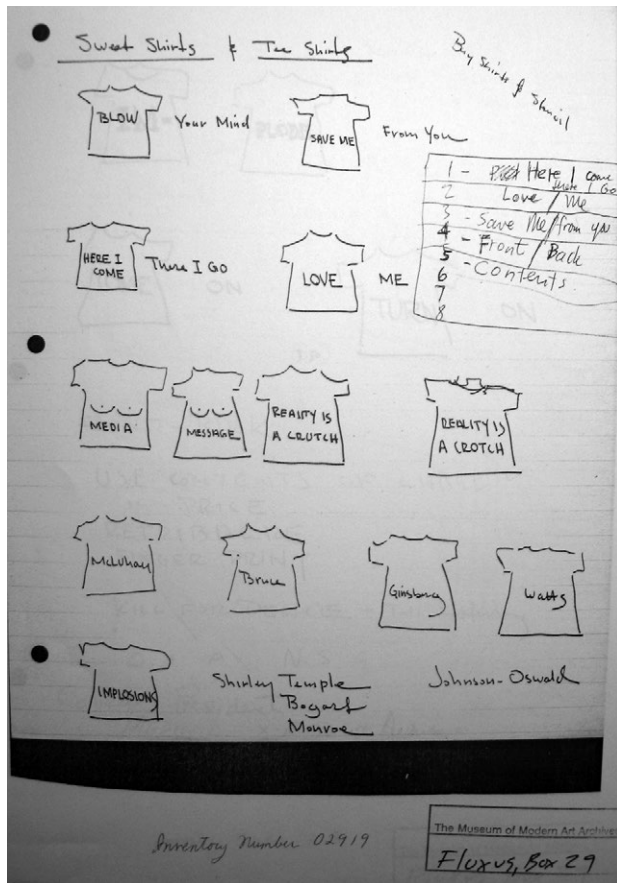 Sweat Shirts & Tee Shirts
Buy shirts & Stencil
BLOW
Your Mind
SAVE ME
From You
1 - Here I come
there I Go
2 Love / Me
3 - Save Me / from you
4 - Front / Back
5 - Contents
6
7
8
HERE I
COME
There I Go
LOVE
ME
MEDIA
MESSAGE
REALITY IS
A CRUTCH
REALITY IS
A CROTCH
McLuhan
Bruce
Ginsberg
Watts
IMPLOSIONS
Shirley Temple
Bogart
Monroe
Johnson-Oswald
Inventory Number 02919
The Museum of Modern Art Archives
Fluxus, Box 29